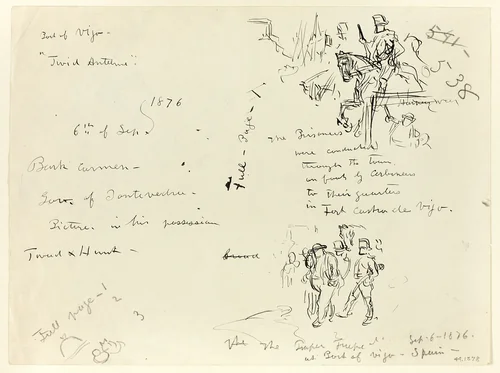 Port of Vigo -
"Twid Antelme".
1876
6th of Sep.
Bark Carmen -
Gov. of Pontevedra -
Picture in his possession
Tweed & Hunt -
Full Page - 1
2
3
Full - Page - 1
The Prisoners
were conducted
through the town
on foot by
to their quarters
in Fort Castro de Vigo.
541
5 38
at Port of Vigo - Spain -
Sep - 6 - 1876.